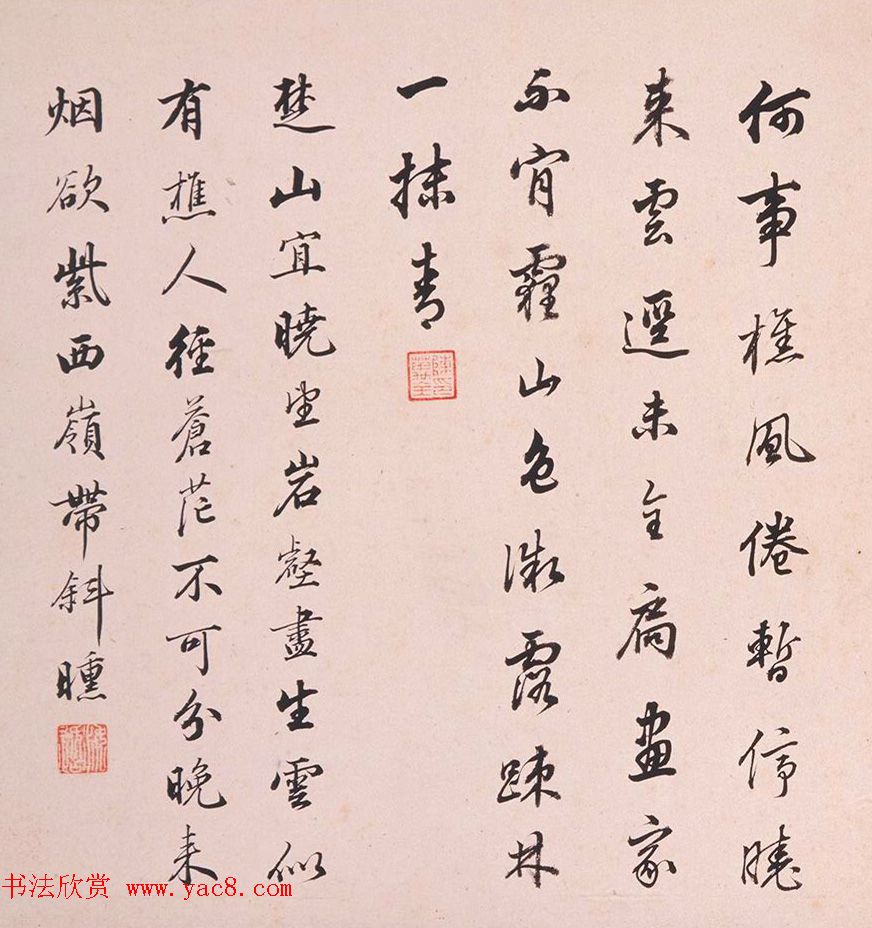 何事樵風倦暫停曉
来雲逕未全扃畫家
不肯霾山色微露疎林
一抹青
楚山宜曉望岩壑盡生雲似
有樵人徑蒼茫不可分晚来
烟欲紫西嶺帶斜曛
书法欣赏 www.yac8.com